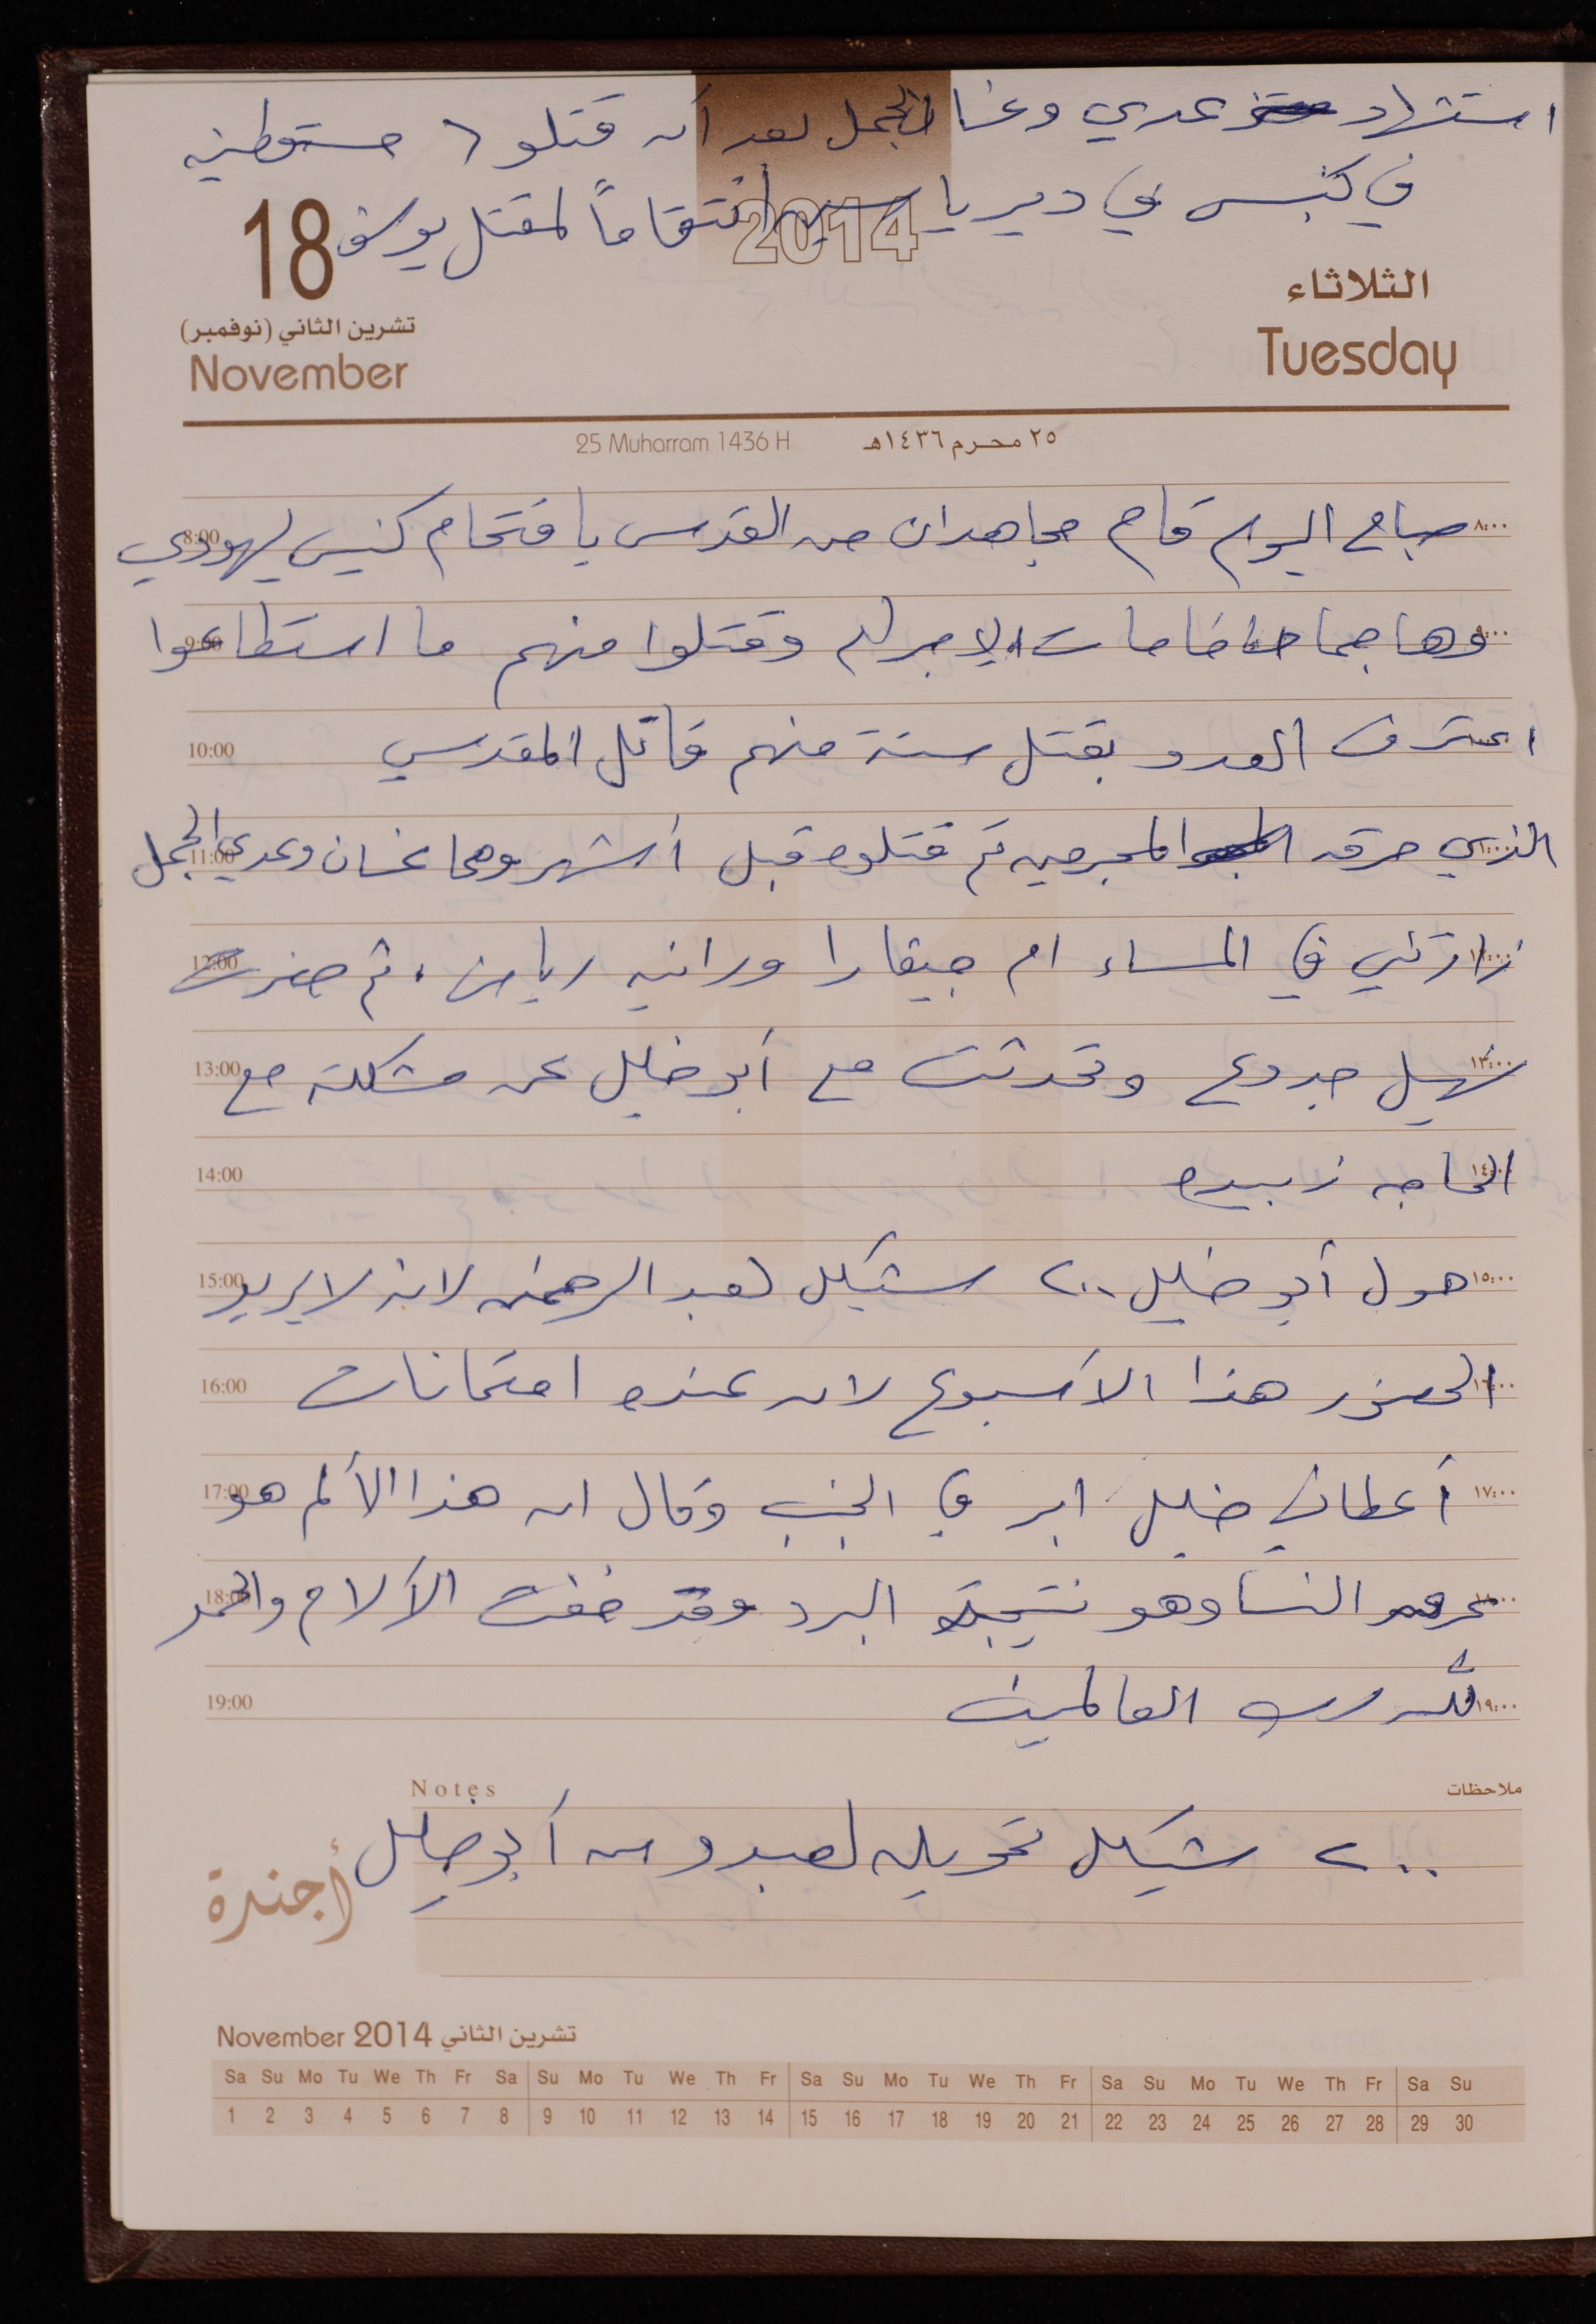 استشهاد عدي وغسا الجمل بعد أن قتلوا ٦ مستوطنين
في كنيس في دير ياسين انتقاماً لمقتل يوسف
18
2014
الثلاثاء
تشرين الثاني (نوفمبر)
November
Tuesday
25 Muharram 1436 H ٢٥ محرم ١٤٣٦هـ
٨:٠٠ صباح اليوم قام مجاهدان من القدس باقتحام كنيس يهودي 8:00
وهاجما حاخامات وقتلوا منهم ما استطاعوا 9:00
اعترف العدو بقتل ستة منهم قاتل المقدسي 10:00
الذي حرقه المجرمين ثم قتلوه قبل أشهر وهما غسان وعدي الجمل 11:00
زارتني في المساء ام جيفارا ورانيه ريان، ثم حضرت 12:00
١٣:٠٠ سهيل جدوع وتحدثت مع أبو خليل عن مشكلته مع 13:00
١٤:٠٠ الحاجه زبيده 14:00
١٥:٠٠ حول أبو خليل ٢٠٠ شيكل لعبد الرحمن لانه لا يريد 15:00
١٦:٠٠ الحضور هذا الأسبوع لان عنده امتحانات 16:00
١٧:٠٠ أعطاني خليل ابر في الجنب وقال ان هذا الألم هو 17:00
١٨:٠٠ عرق النسا وهو نتيجة البرد وقد خفت الآلام والحمد 18:00
١٩:٠٠ لله رب العالمين 19:00
Notes ملاحظات
٢٠٠ شيكل تحويله لعبد من أبو خليل
أجندة
November 2014 تشرين الثاني
Sa Su Mo Tu We Th Fr Sa Su Mo Tu We Th Fr Sa Su Mo Tu We Th Fr Sa Su Mo Tu We Th Fr Sa Su
1 2 3 4 5 6 7 8 9 10 11 12 13 14 15 16 17 18 19 20 21 22 23 24 25 26 27 28 29 30